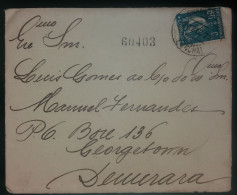 Exmo
Sr. Snr.
60403
Luis Gomes ao C/o do Snr.
Manuel Fernandes
P.O. Box 136
Georgetown
Demerara